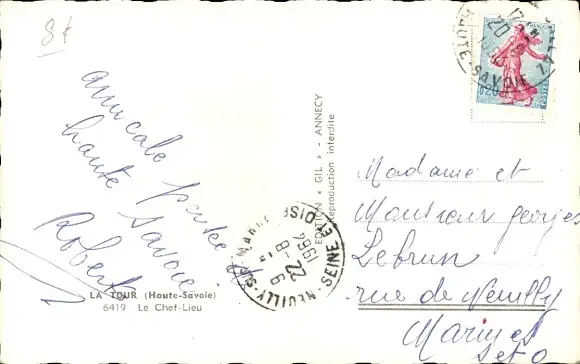 8t
amicale
haute
Savoie
Robert
LA TOUR (Haute-Savoie)
6419 Le Chef-Lieu
EDITION « GIL » - ANNECY
Reproduction interdite
HAUTE SAVOIE
0,20
NEUILLY-SUR-MARNE
SEINE-ET-OISE
22 - 9
1964
Madame et
Monsieur georges
Lebrun
rue de Neuilly
Marines
S et O